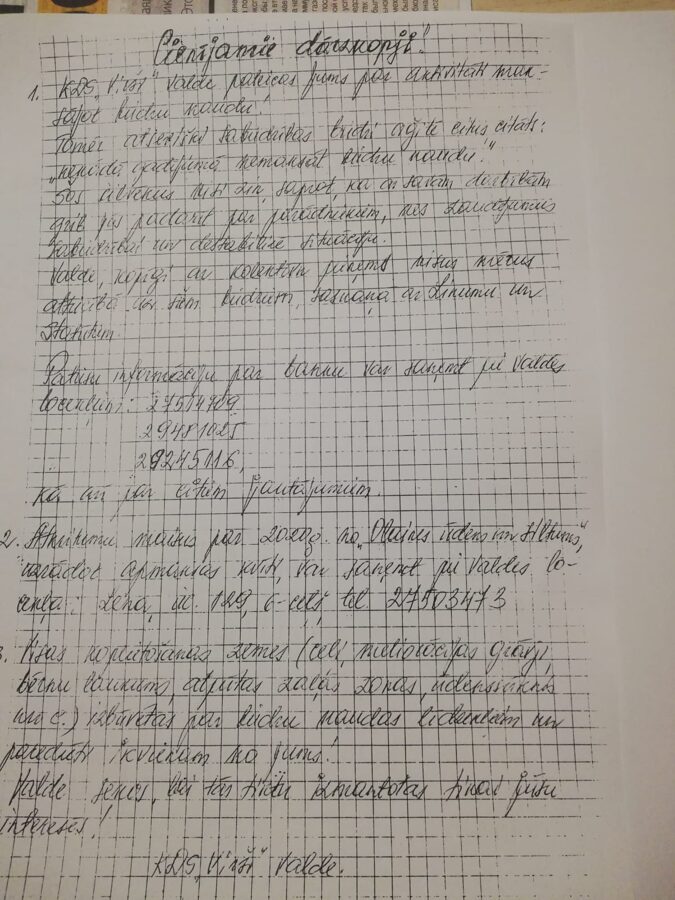 Cienījamie dārzkopji!
1. KDS „Virši” valde pateicas jums par aktivitāti mak-
sājot biedru naudu!
Tomēr atsevišķi sabiedrības biedri aģitē citus citāti:
„nekādā gadījumā nemaksāt biedru naudu!”
Šos cilvēkus visi zin, saprot, ka ar savām darbībām
grib jūs padarīt par parādniekiem, mēs zaudējumus
sabiedrībai un destabilizē situāciju.
Valde, kopīgi ar kolektīvu pieņems visus mērus
attiecībā uz šiem biedriem, saskaņā ar Likumu un
Statutiem.
Patiesu informāciju par banku var saņemt pie Valdes
locekļiem: 27514709
29481025
29245116,
kā arī par citiem jautājumiem.
2. Atkritumu maisus par 2020g. no „Olaines ūdens un siltums”,
uzrādot apmaksas kvīti, var saņemt pie Valdes lo-
cekļa: Ļena, 129, 6-ceļš tel. 27503473
3. Visas koplietošanas zemes (ceļi, meliorācijas grāvji,
bērnu laukums, atpūtas zaļās zonas, ūdenssūknis
un c.) izbūvētas par biedru naudas līdzekļiem un
paredzēti ikvienam no jums!
Valde seko, lai tās tiktu izmantotas tikai jūsu
interesēs!
KDS „Virši” Valde.